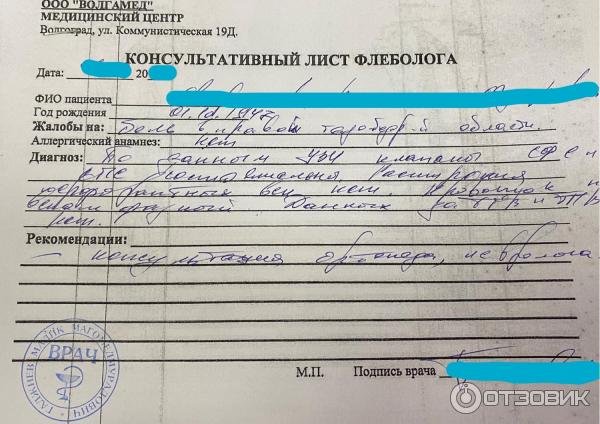 ООО "ВОЛГАМЕД"
МЕДИЦИНСКИЙ ЦЕНТР
Волгоград, ул. Коммунистическая 19Д.
КОНСУЛЬТАТИВНЫЙ ЛИСТ ФЛЕБОЛОГА
Дата: 20
ФИО пациента
Год рождения
Жалобы на: боль в правой тазобедр-й области.
Аллергический анамнез: нет
Диагноз: По данным УЗИ клапаны СФС и
СПС расширения
перфорантных вен нет. Кровоток по
венам фазный Данных за ТГВ и
нет.
Рекомендации:
- консультация ортопеда, невролога
М.П. Подпись врача
ВРАЧ
ОТЗОВИК